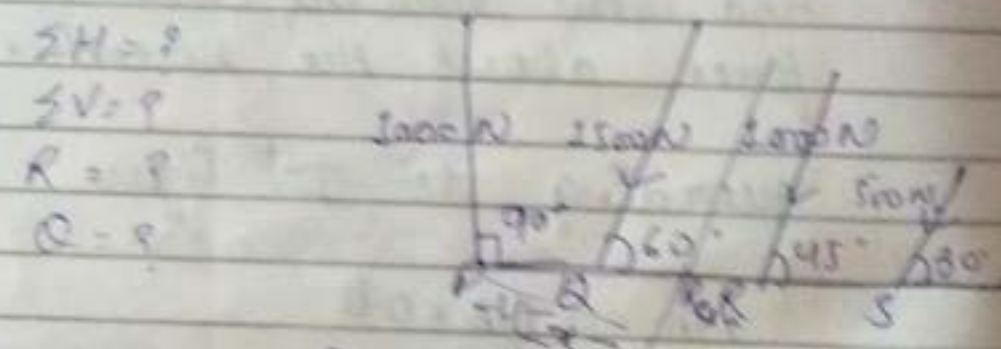 ΣH = ?
ΣV = ?
R = ?
Q = ?
1000N 1500N 1000N
500N
90° 60° 45° 30°
P Q R S